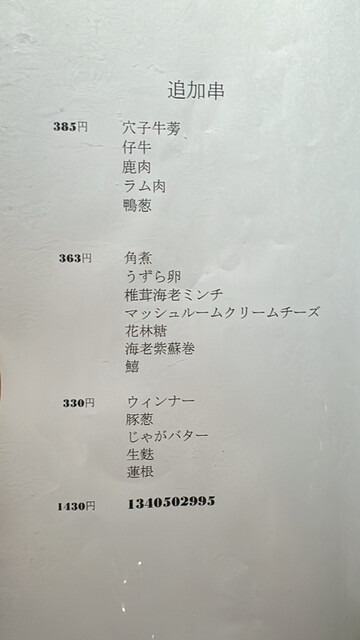 追加串
385円 穴子牛蒡
仔牛
鹿肉
ラム肉
鴨葱
363円 角煮
うずら卵
椎茸海老ミンチ
マッシュルームクリームチーズ
花林糖
海老紫蘇巻
鱚
330円 ウィンナー
豚葱
じゃがバター
生麩
蓮根
1430円 1340502995